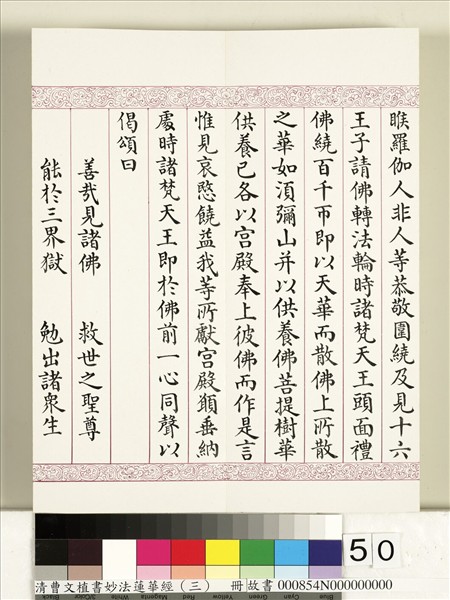 睺羅伽人非人等恭敬圍繞及見十六
王子請佛轉法輪時諸梵天王頭面禮
佛繞百千帀即以天華而散佛上所散
之華如須彌山并以供養佛菩提樹華
供養已各以宮殿奉上彼佛而作是言
惟見哀愍饒益我等所獻宮殿願垂納
處時諸梵天王即於佛前一心同聲以
偈頌曰
善哉見諸佛 救世之聖尊
能於三界獄 勉出諸眾生
50
清曹文植書妙法蓮華經（三） 冊 故書 000854N000000000
Black 3/Color White Magenta Red Yellow Green Cyan Blue